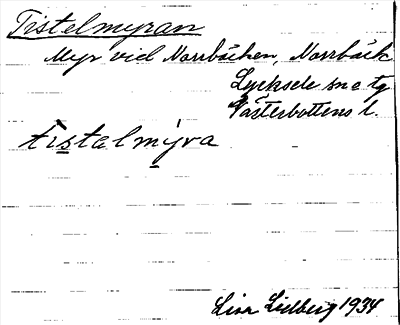 Tistelmyran
Myr vid Norrbäcken, Norrbäck
Lycksele sn o. tg
Västerbottens l.
tistalmyra
Lisa Lidberg 1934